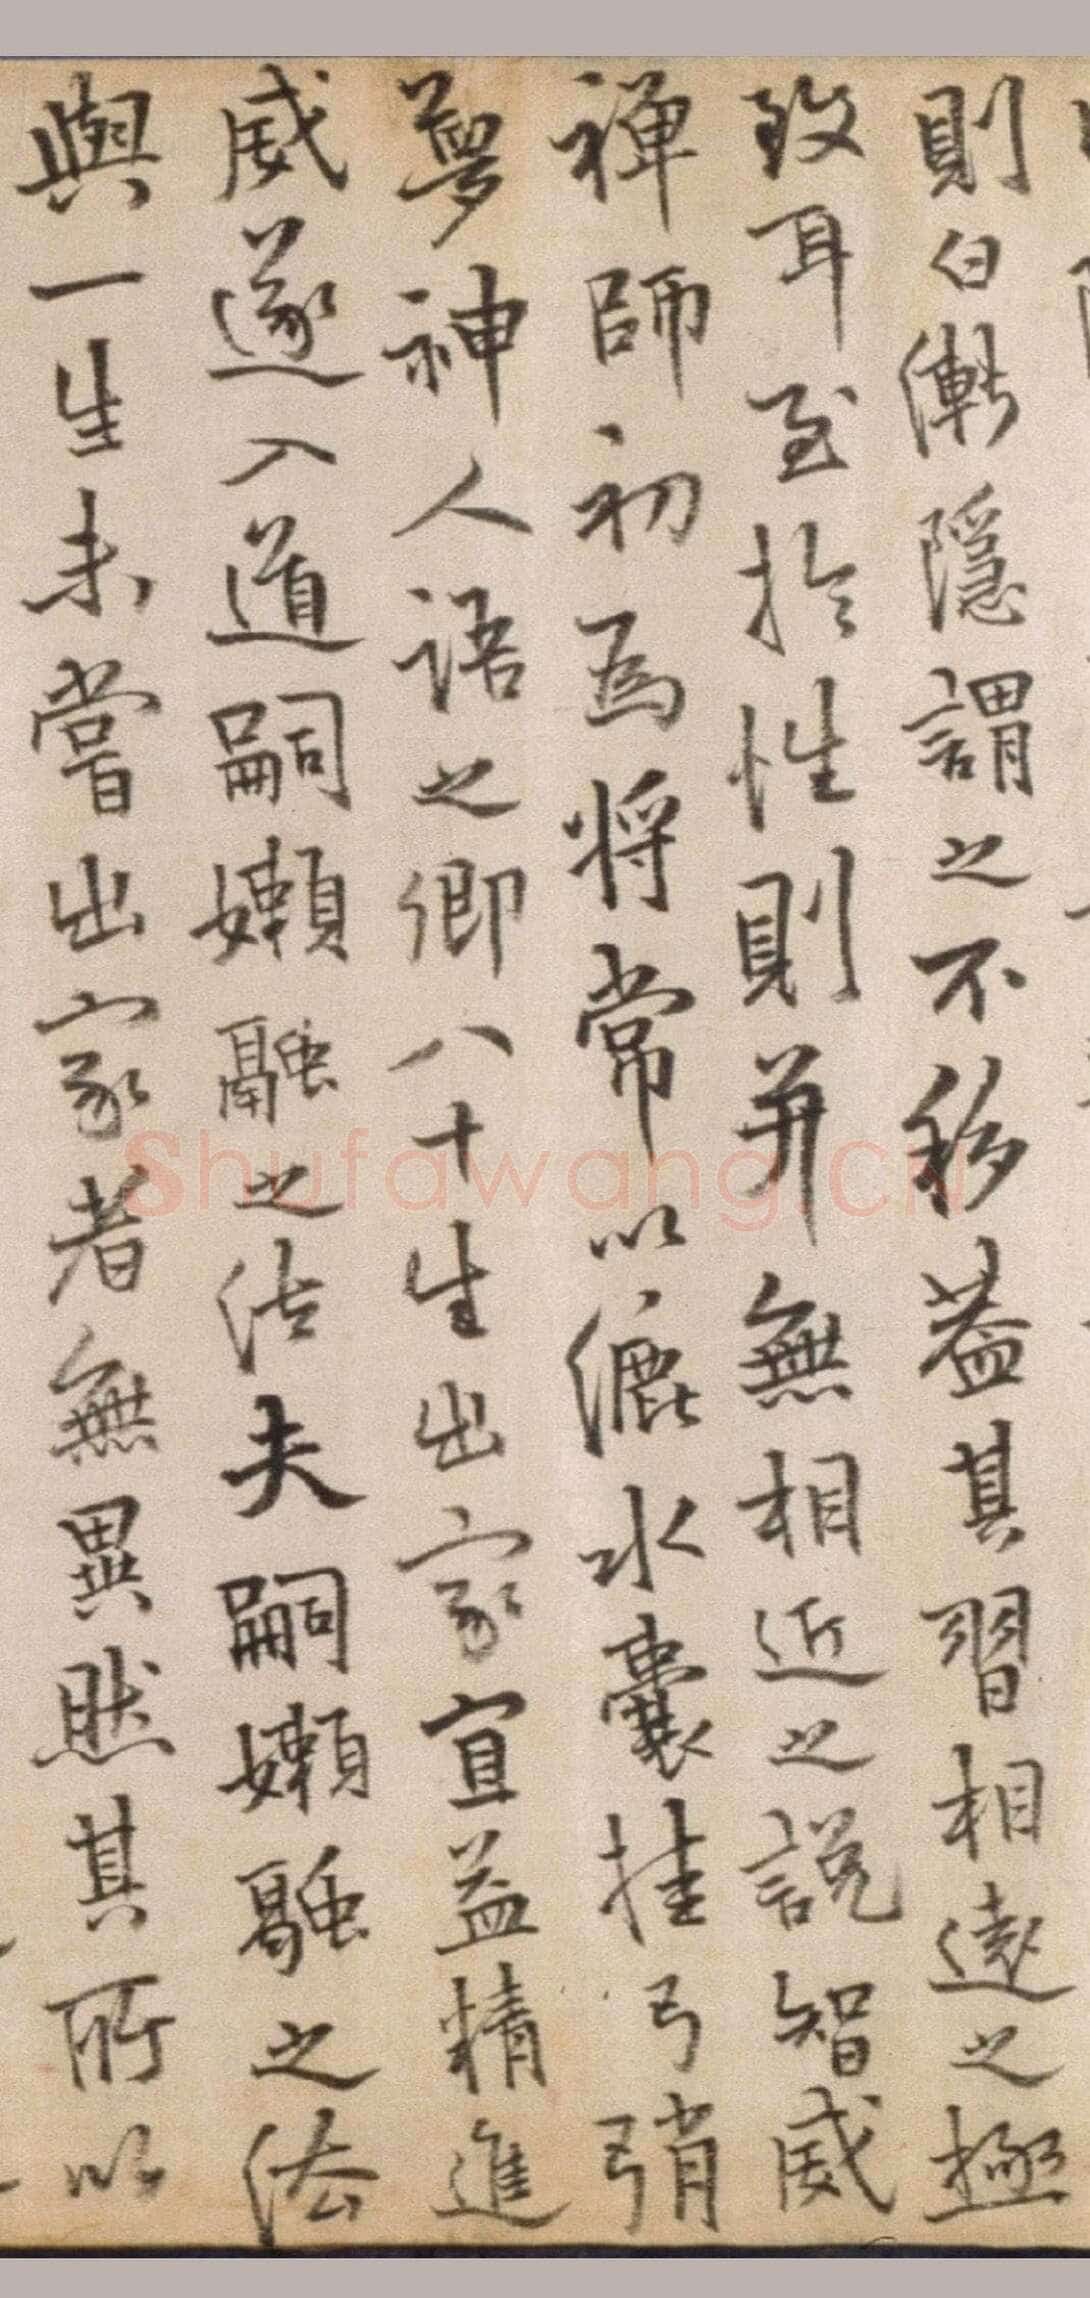 則白漸隱謂之不移蓋其習相遠之極
致耳至於性則并無相近之說智威
禪師初為將常以漉水囊挂弓弰
夢神人語之卿八十生出家宜益精進
威遂入道嗣嬾融之法夫嗣嬾融之法
與一生未嘗出家者無異然其所以
Shufawang.CN